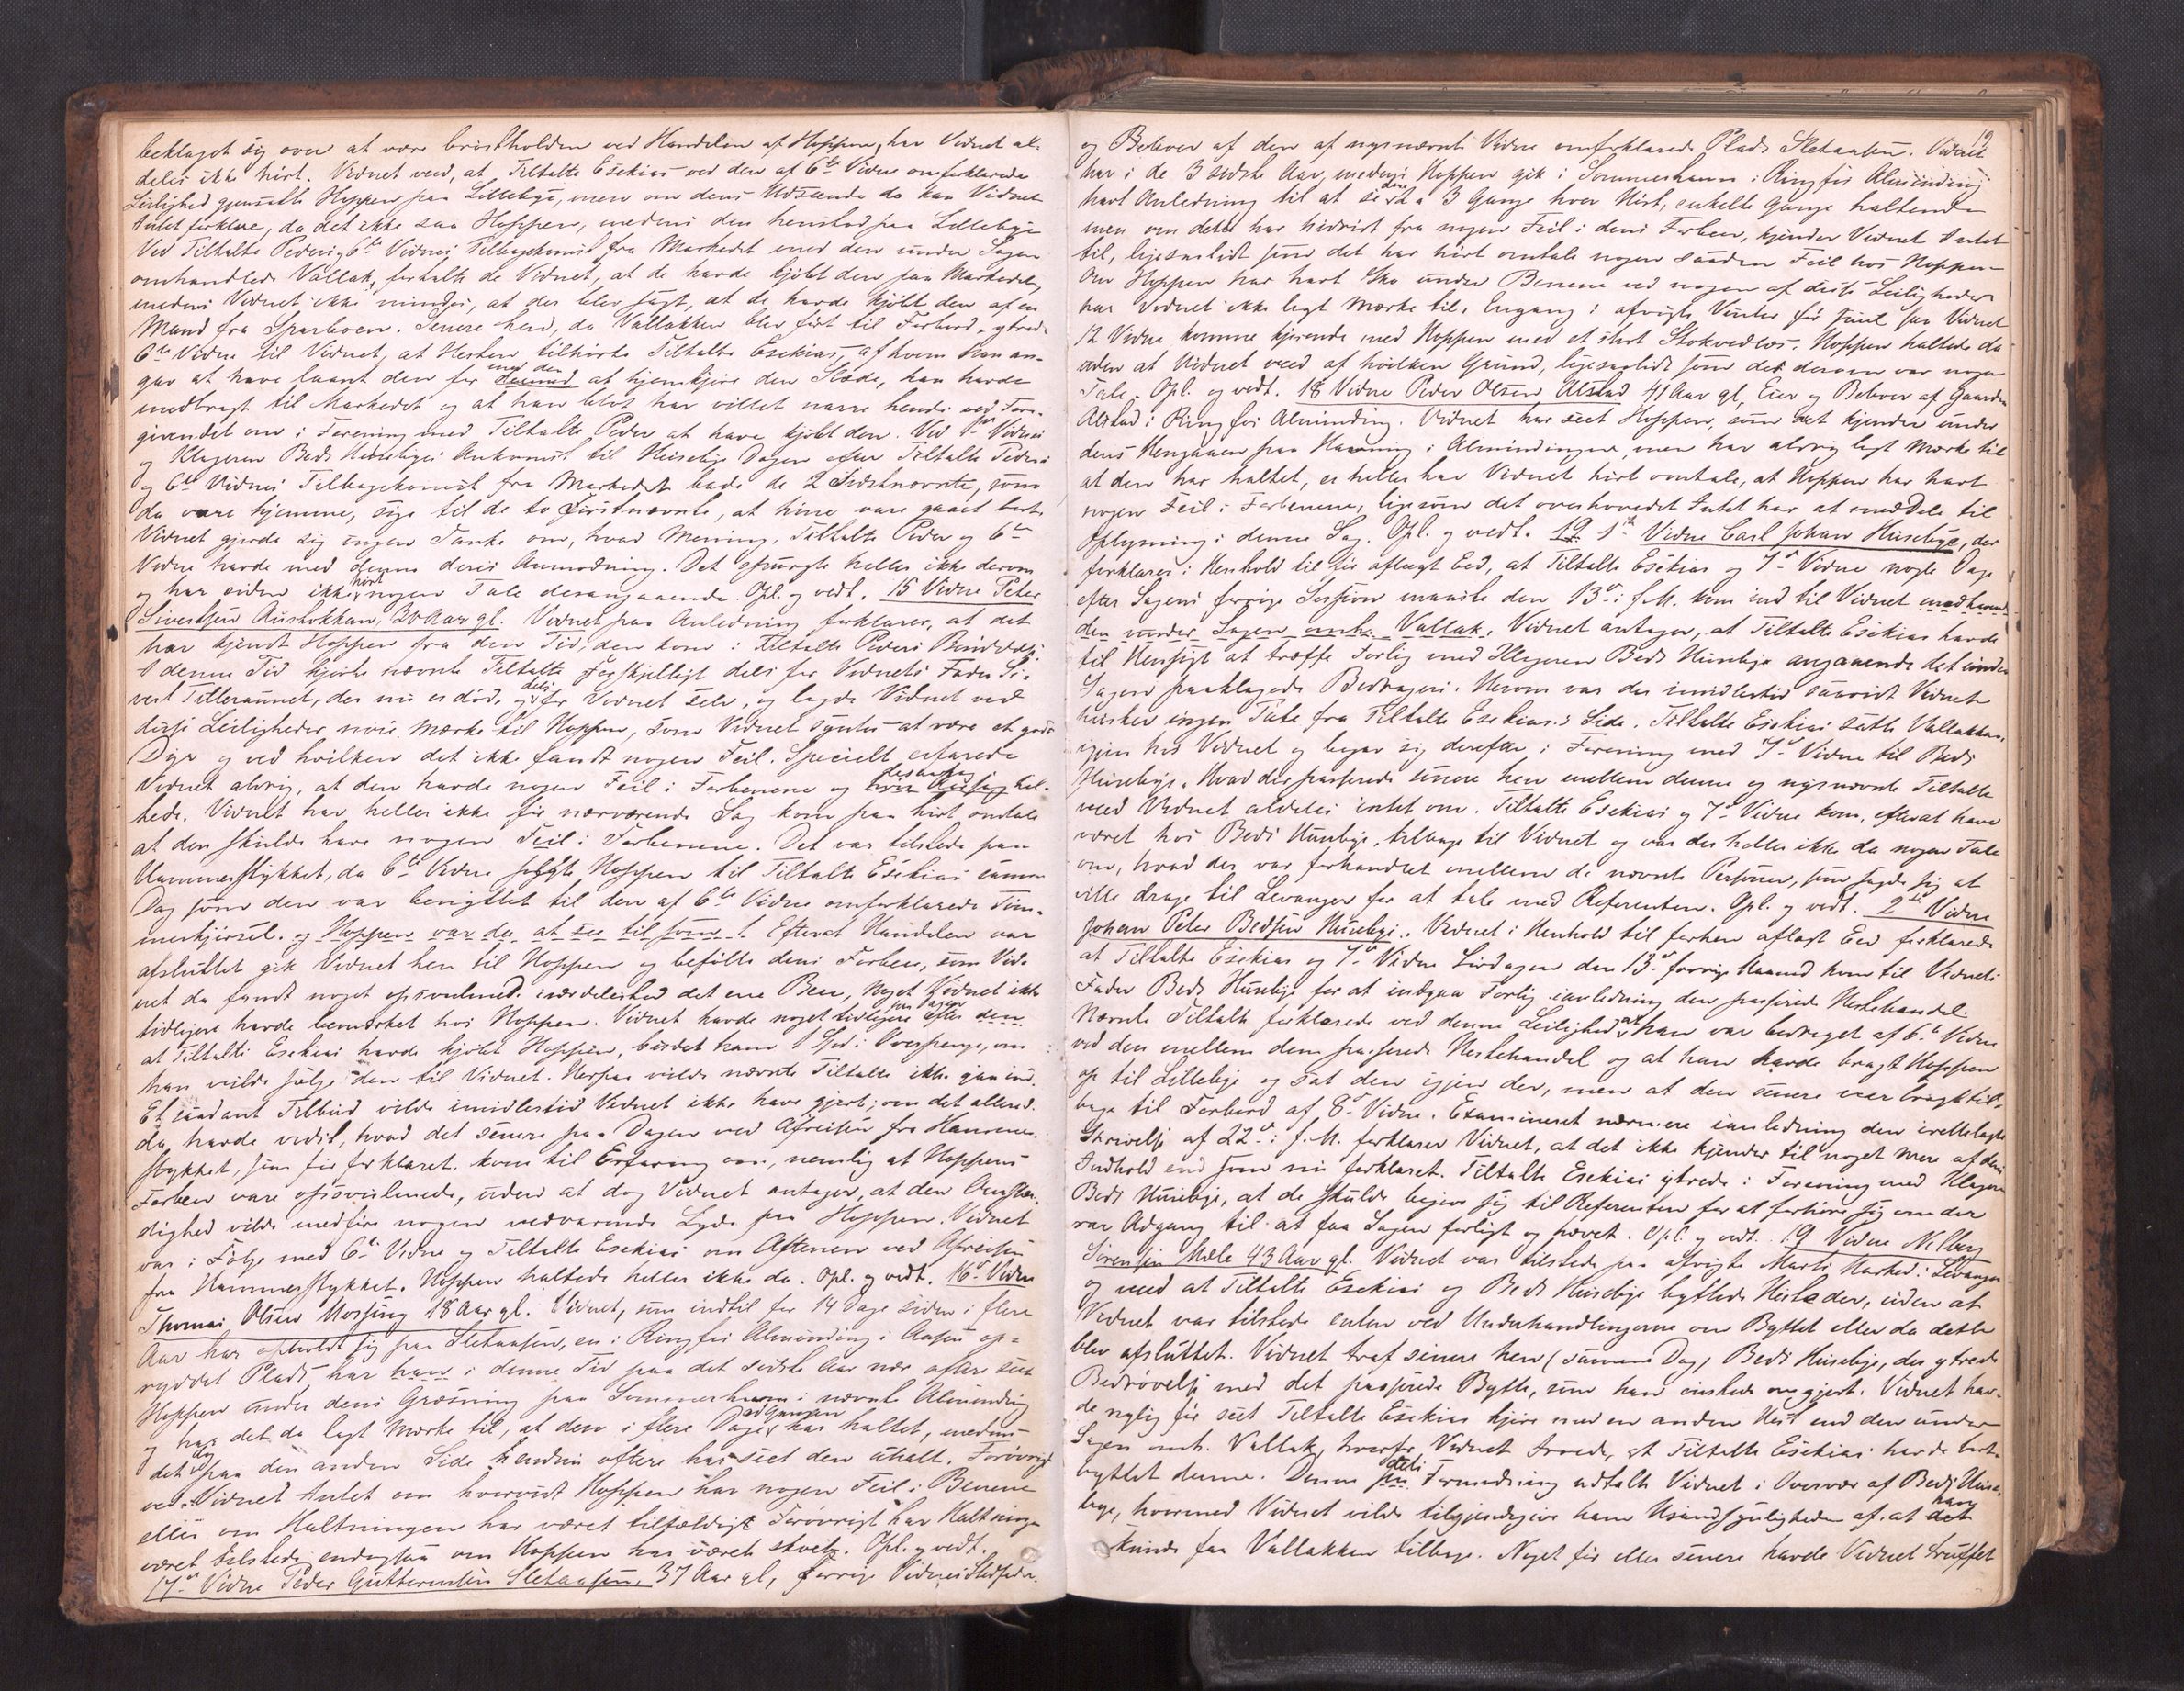 beklaget sig over at være bristholden ved Handelen af Hoppen, har Vidnet al-
deles ikke hørt. Vidnet veed, at Tiltalte Esekias ved den af 6te Vidne omforklarede
Leilighed gjensatte Hoppen paa Lillebye, men om dens Udseende da kan Vidnet
Intet forklare, da det ikke saa Hoppen, medens den henstod paa Lillebye
Ved Tiltalte Peders og 6te Vidnes Tilbagekomst fra Markedet med den under Sagen
omhandlede Vallak, fortalte de Vidnet, at de havde kjøbt den paa Markedet,
medens Vidnet ikke mindes, at der blev sagt, at de havde kjøbt den af en
Mand fra Sparboen. Senere hen, da Vallakken blev ført til Forbord, ytrede
6te Vidne til Vidnet, at Hesten tilhørte Tiltalte Esekias, af hvem han an-
gav at have laant den for med den at hjemkjøre den Slæde, han havde
medbragt til Markedet og at han blot har villet narre hende ved Fore-
givendet om i Forening med Tiltalte Peder at have kjøbt den. Ved 1ste Vidnes
og Klageren Beds Husebyes Ankomst til Husebye Dagen efter Tiltalte Peders
og 6te Vidnes Tilbagekomst fra Markedet bade de 2 Sidstnævnte, som
da vare hjemme, sige til de to Førstnævnte, at hine vare gaaet bort.
Vidnet gjorde sig ingen Tanke om, hvad Mening, Tiltalte Peder og 6te
Vidne havde med denne deres Anmodning. Det spurgte heller ikke derom
og har siden ikke hørt nogen Tale desangaaende. Opl. og vedt. 15 Vidne Peter
Sivertsen Aunlokkan, 30 Aar gl. Vidnet paa Anledning forklarer, at det
har kjendt Hoppen fra den Tid, den kom i Tiltalte Peders Besiddelse.
I denne Tid kjørte nævnte Tiltalte forskjelligt dels for Vidnets Fader Si-
vert Tilleraunet, der nu er død, og dels for Vidnet selv, og lagde Vidnet ved
disse Leiligheder nøie Mærke til Hoppen, som Vidnet syntes at være et godt
Dyr og ved hvilken det ikke fandt nogen Feil. Specielt erfarede
Vidnet aldrig, at den havde nogen Feil i Forbenene og desaarsag hal-
tede. Vidnet har heller ikke før nærværende Sag kom paa hørt omtale
at den skulde have nogen Feil i Forbenene. Det var tilstede paa
Hammerstykket, da 6te Vidne solgte Hoppen til Tiltalte Esekias samme
Dag som den var benyttet til den af 6te Vidne omforklarede Tøm-
merkjørsel. og Hoppen var da at see til som 1. Efterat Handelen var
afsluttet gik Vidnet hen til Hoppen og befølte dens Forben, som Vid-
net da fandt noget opsvulmed. især det ene Ben, noget Vidnet ikke
tidligere havde bemærket hos Hoppen. Vidnet havde noget tidligere paa Dagen efter den
at Tiltalte Esekias havde kjøbt Hoppen, budet ham 1 Spd. i Overpenge, om
han vilde sælge den til Vidnet. Herpaa vilde nævnte Tiltalte ikke gaa ind.
Et saadant Tilbud vilde imidlertid Vidnet ikke have gjort, om det allered.
da havde vidst, hvad det senere paa Dagen ved Afreisen fra Hammer-
stykket, som før forklaret, kom til Erfaring om, nemlig at Hoppens
Forben vare opsvulmede, uden at dog Vidnet antager, at den Omstæn-
dighed vilde medføre nogen vedvarende Lyde paa Hoppen. Vidnet
var i Følge med 6te Vidne og Tiltalte Esekias om Aftenen ved Afreisen
fra Hammerstykket. Hoppen haltede heller ikke da. Opl. og vedt. 16de Vidne
Thomas Olsen Mossing 18 Aar gl. Vidnet, som indtil for 14 Dage siden i flere
Aar har opholdt sig paa Sletaasen, en i Ringfos Alminding i Aasen op-
ryddet Plads, har han i denne Tid paa det sidste Aar nær oftere seet
Hoppen under dens Græsning paa Sommerhavn i nævnte Alminding
og har det da lagt Mærke til, at den i flere Dage ad Gangen har haltet, medens
det dog paa den anden Side endnu oftere har seet den uhalt. Forøvrigt
ved Vidnet Intet om hvorvidt Hoppen har nogen Feil i Benene
eller om Haltningen har været tilfældigt. Forøvrigt har Haltningen
været tilstede, endogsaa om Hoppen har været skoet. Opl. og vedt.
17de Vidne Peder Guttormsen Sletaasen, 37 Aar gl, forrige Vidnes Stedfader
19
og Beboer af den af nysnævnte Vidne omforklarede Plads Sletaasen. Vidnet
har i de 3 sidste Aar, medens Hoppen gik i Sommerhavn i Ringfos Alminding
havt Anledning til at see den 2 a 3 Gange hver Høst, enkelte Gange haltende
men om dette har hidrørt fra nogen Feil i dens Forben, kjender Vidnet Intet
til, ligesaalidt som det har hørt omtale nogen saadan Feil hos Hoppen.
Om Hoppen har havt Sko under Benene ved nogen af disse Leiligheder
har Vidnet ikke lagt Mærke til. Engang i afvigte Vinter før Juul saa Vidnet
12 Vidne komme kjørende med Hoppen med et stort Stokvedlæs. Hoppen haltede da
uden at Vidnet veed af hvilken Grund, ligesaalidt som det derom var nogen
Tale. Opl. og vedt. 18 Vidne Peder Olsen Alstad 41 Aar gl, Eier og Beboer af Gaarden
Alstad i Ringfos Alminding. Vidnet har seet Hoppen, som det kjender under
dens Hengaaen paa Havning i Almindingen, men har aldrig lagt Mærke til
at den har haltet, ei heller har Vidnet hørt omtale, at Hoppen har havt
nogen Feil i Forbenene, ligesom det overhovedet Intet har at meddele til
Oplysning i denne Sag. Opl. og vedt. 19. 1ste Vidne Carl Johan Husebye, der
forklarer i Henhold til før aflagt Eed, at Tiltalte Esekias og 7de Vidne nogle Dage
efter Sagens forrige Session maaske den 13de i f. M. kom ind til Vidnet medhavende
den under Sagen omh. Vallak. Vidnet antager, at Tiltalte Esekias havde
til Hensigt at træffe Forlig med Klageren Beds Husebye angaaende det under
Sagen paaklagede Bedrageri. Herom var der imidlertid saavidt Vidnet
husker ingen Tale fra Tiltalte Esekias's Side. Tiltalte Esekias satte Vallakken
igjen hos Vidnet og begav sig derefter i Forening med 7de Vidne til Beds
Husebye. Hvad der passerede senere hen mellem denne og nysnævnte Tiltalte
veed Vidnet aldeles intet om. Tiltalte Esekias og 7de Vidne kom, efterat have
været hos Beds Husebye, tilbage til Vidnet og var der heller ikke da nogen Tale
om, hvad der var forhandlet mellem de nævnte Personer, som sagde sig at
ville drage til Levanger for at tale med Referenten. Opl. og vedt. 2det Vidne
Johan Peter Bedsen Husebye. Vidnet i Henhold til forhen aflagt Eed forklarede
at Tiltalte Esekias og 7de Vidne Lørdagen den 13de forrige Maaned kom til Vidnets
Fader Beds Husebye for at indgaa Forlig i anledning den passerede Hestehandel.
Nævnte Tiltalte forklarede ved denne Leilighed at han var bedraget af 6te Vidne
ved den mellem dem passerede Hestehandel og at han havde bragt Hoppen
op til Lillebye og sat den igjen der, men at den senere var bragt til-
bage til Forbord af 8de Vidne. Examineret nærmere i anledning den irettelagte
Skrivelse af 22de i f. M. forklarer Vidnet, at det ikke kjender til noget mere af dens
Indhold end som nu forklaret. Tiltalte Esekias ytrede i Forening med Klageren
Beds Husebye, at de skulde begive sig til Referenten for at forhøre sig om der
var Adgang til at faa Sagen forligt og hævet. Opl. og vedt. 19 Vidne Nelberg
Sørensen Mæle 43 Aar gl. Vidnet var tilstede paa afvigte Marts Marked i Levanger
og veed at Tiltalte Esekias og Beds Husebye byttede Heste der, uden at
Vidnet var tilstede enten ved Underhandlingerne om Byttet eller da dette
blev afsluttet. Vidnet traf senere hen (samme Dag) Beds Husebye, der ytrede
Bedrøvelse med det passerede Bytte, som han ønskede omgjort. Vidnet hav-
de nylig før seet Tiltalte Esekias kjøre med en anden Hest end den under
Sagen omh. Vallak, hvorfor Vidnet troede, at Tiltalte Esekias havde bort-
byttet denne. Denne sin Formodning udtalte Vidnet i Overvær af Beds Huse-
bye, hvormed Vidnet vilde tilkjendegive ham Usandsynligheden af at han
kunde faa Vallakken tilbage. Noget før eller senere havde Vidnet truffet